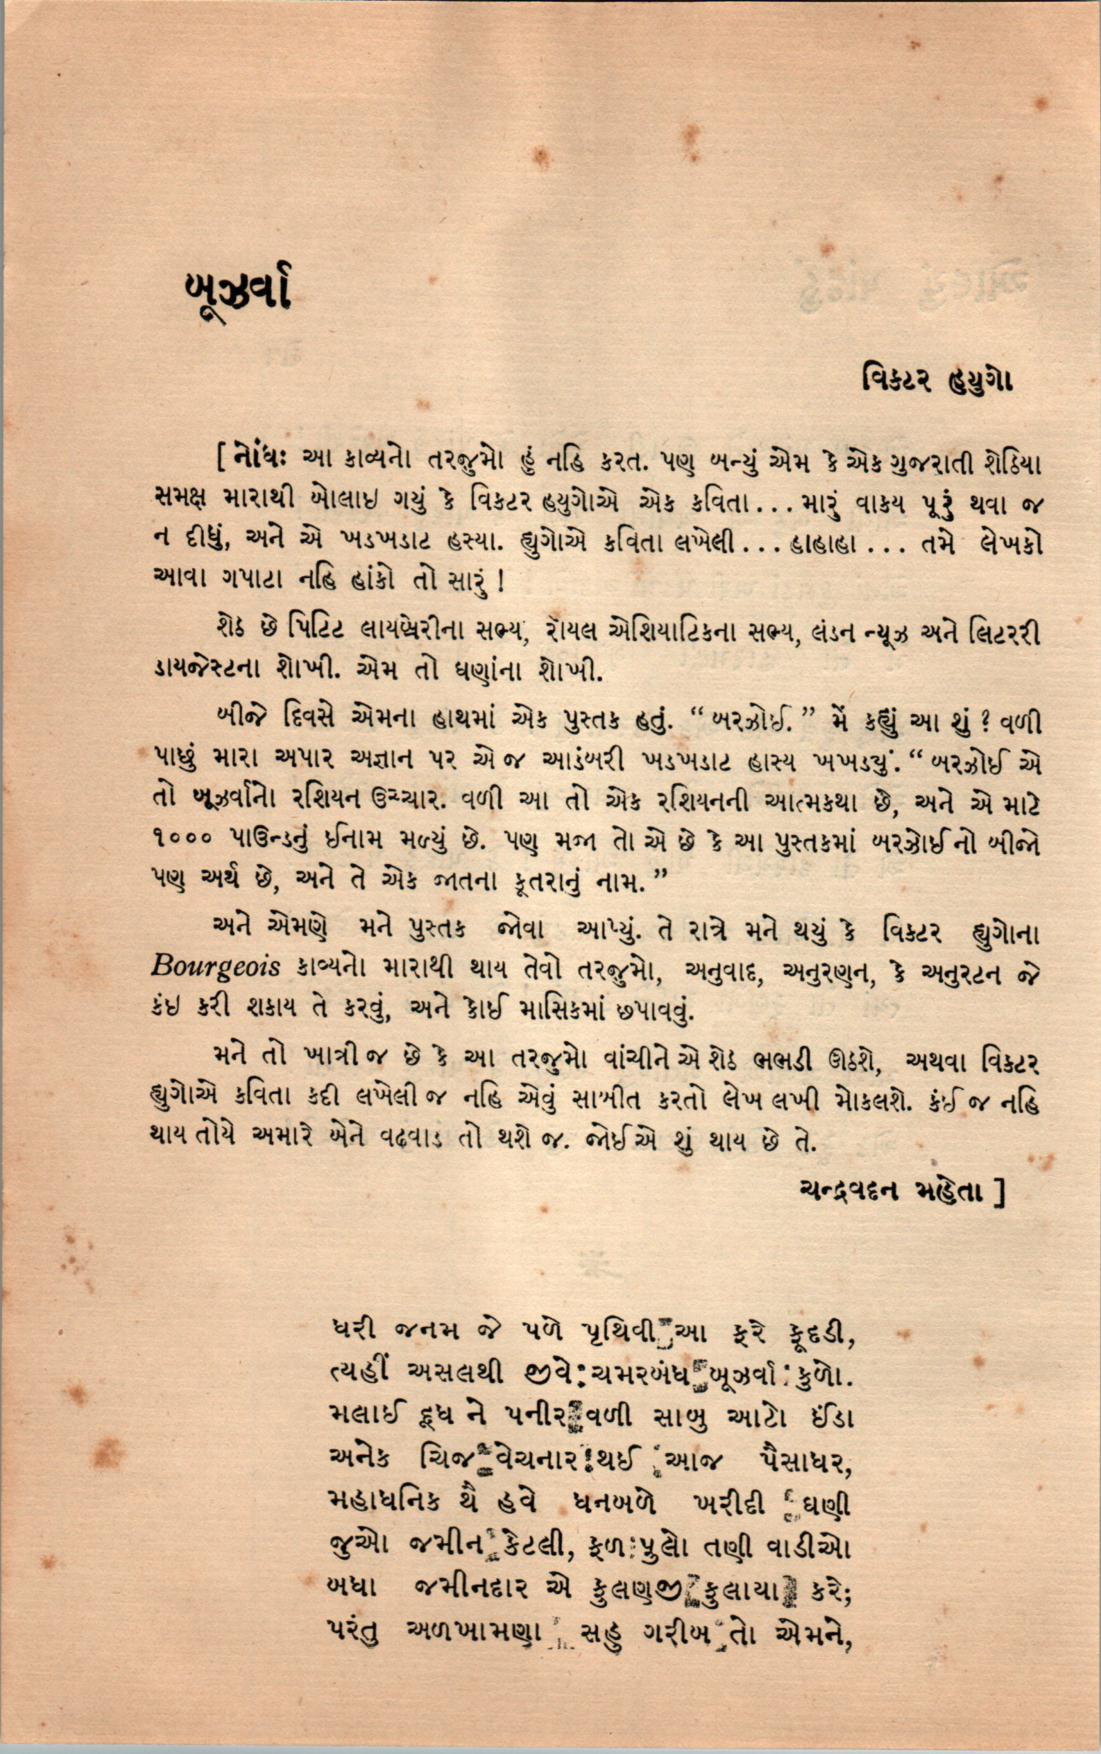 બૂઝર્વા
વિક્ટર હયુગો
[ નોંધઃ આ કાવ્યનો તરજુમો હું નહિ કરત. પણ બન્યું એમ કે એક ગુજરાતી શેઠિયા
સમક્ષ મારાથી બોલાઇ ગયું કે વિકટર હયુગોએ એક કવિતા... મારું વાકય પૂરું થવા જ
ન દીધું, અને એ ખડખડાટ હસ્યા. હ્યુગોએ કવિતા લખેલી... હાહાહા... તમે લેખકો
આવા ગપાટા નહિ હાંકો તો સારું !
શેઠ છે પિટિટ લાયબ્રેરીના સભ્ય, રૉયલ એશિયાટિકના સભ્ય, લંડન ન્યૂઝ અને લિટરરી
ડાયજેસ્ટના શોખી. એમ તો ઘણાંના શોખી.
બીજે દિવસે એમના હાથમાં એક પુસ્તક હતું. “ બરઝોઈ.” મેં કહ્યું આ શું ? વળી
પાછું મારા અપાર અજ્ઞાન પર એ જ આડંબરી ખડખડાટ હાસ્ય ખખડ્યું. “ બરઝોઈ એ
તો બૂઝર્વાનો રશિયન ઉચ્ચાર. વળી આ તો એક રશિયનની આત્મકથા છે, અને એ માટે
૧૦૦૦ પાઉન્ડનું ઈનામ મળ્યું છે. પણ મજા તો એ છે કે આ પુસ્તકમાં બરઝોઈનો બીજો
પણ અર્થ છે, અને તે એક જાતના કૂતરાનું નામ.”
અને એમણે મને પુસ્તક જોવા આપ્યું. તે રાત્રે મને થયું કે વિક્ટર હ્યુગોના
Bourgeois કાવ્યનો મારાથી થાય તેવો તરજુમો, અનુવાદ, અનુરણન, કે અનુરટન જે
કંઇ કરી શકાય તે કરવું, અને કોઈ માસિકમાં છપાવવું.
મને તો ખાત્રી જ છે કે આ તરજુમો વાંચીને એ શેઠ ભભડી ઊઠશે, અથવા વિક્ટર
હ્યુગોએ કવિતા કદી લખેલી જ નહિ એવું સાબીત કરતો લેખ લખી મોકલશે. કંઈ જ નહિ
થાય તોયે અમારે બેને વઢવાડ તો થશે જ. જોઈએ શું થાય છે તે.
ચન્દ્રવદન મહેતા ]
ધરી જનમ જે પળે પૃથિવી આ ફરે ફૂદડી,
ત્યહીં અસલથી જીવે ચમરબંધ બૂઝર્વા કુળો.
મલાઈ દૂધ ને પનીર વળી સાબુ આટો ઈંડા
અનેક ચિજ વેચનાર થઈ આજ પૈસાધર,
મહાધનિક થૈ હવે ધનબળે ખરીદી ઘણી
જુઓ જમીન કેટલી, ફળ ફુલો તણી વાડીઓ
બધા જમીનદાર એ ફુલણજી ફુલાયા કરે;
પરંતુ અળખામણા સહુ ગરીબ તો એમને,